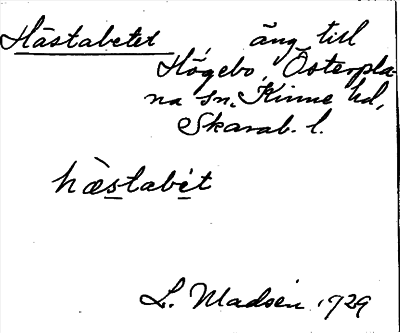 Hästabetet, äng till
Högebo, Österpla-
na sn, Kinne hd,
Skarab. l.
hæ̀stabét
L. Madsén 1729